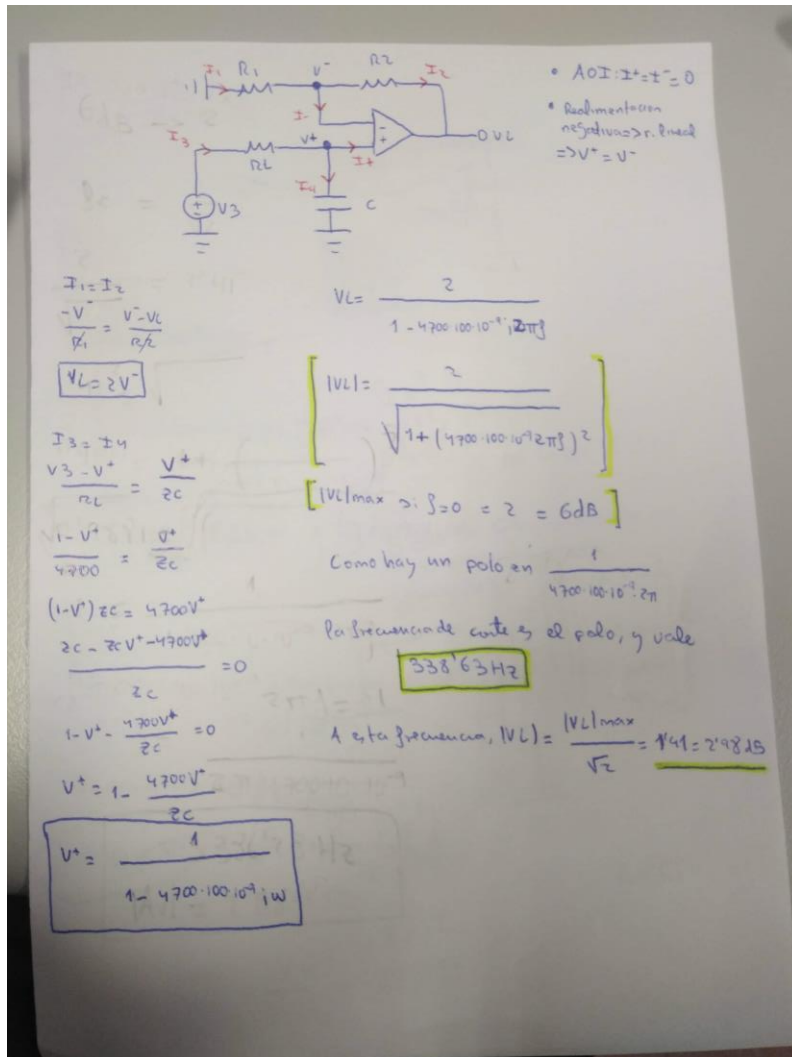 I1 R1 V- R2 I2
I-
I3 V+ I+ VL
RL
I4
V3 C
• AOI: I+=I-=0
• Realimentacion
negativa=>r. lineal
=>V+ = V-
I1=I2
-V-/R1 = V--VL/R2
VL=2V-
I3 = I4
V3-V+/RL = V+/ZC
1-V+/4700 = V+/ZC
(1-V+) ZC = 4700V+
ZC - ZCV+-4700V+/ZC =0
1-V+- 4700V+/ZC =0
V+ = 1- 4700V+/ZC
V+ = 1/1-4700·100·10-9·jω
VL= 2/1-4700·100·10-9·j2πf
|VL|= 2/√1+(4700·100·10-9 2πf)2
|VL|max si f=0 = 2 = 6dB
Como hay un polo en 1/4700·100·10-9·2π
la frecuencia de corte es el polo, y vale
338'63Hz
A esta frecuencia, |VL| = |VL|max/√2 = 1'41=2'98dB